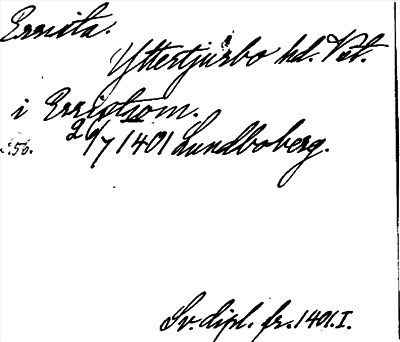 Errista.
Yttertjurbo hd. Vst.
i Erristom.
S. 56. 26/7 1401 Lundboberg.
Sv. dipl. fr. 1401. I.